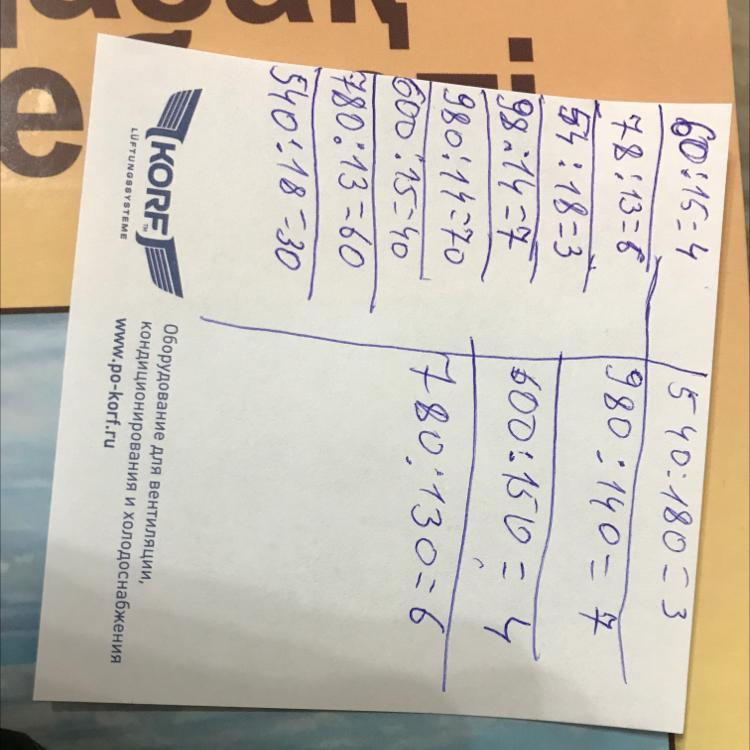 60:15=4
78:13=6
54:18=3
98:14=7
980:14=70
600:15=40
780:13=60
540:18=30
540:180=3
980:140=7
600:150=4
780:130=6
KORF™
LÜFTUNGSSYSTEME
Оборудование для вентиляции,
кондиционирования и холодоснабжения
www.po-korf.ru